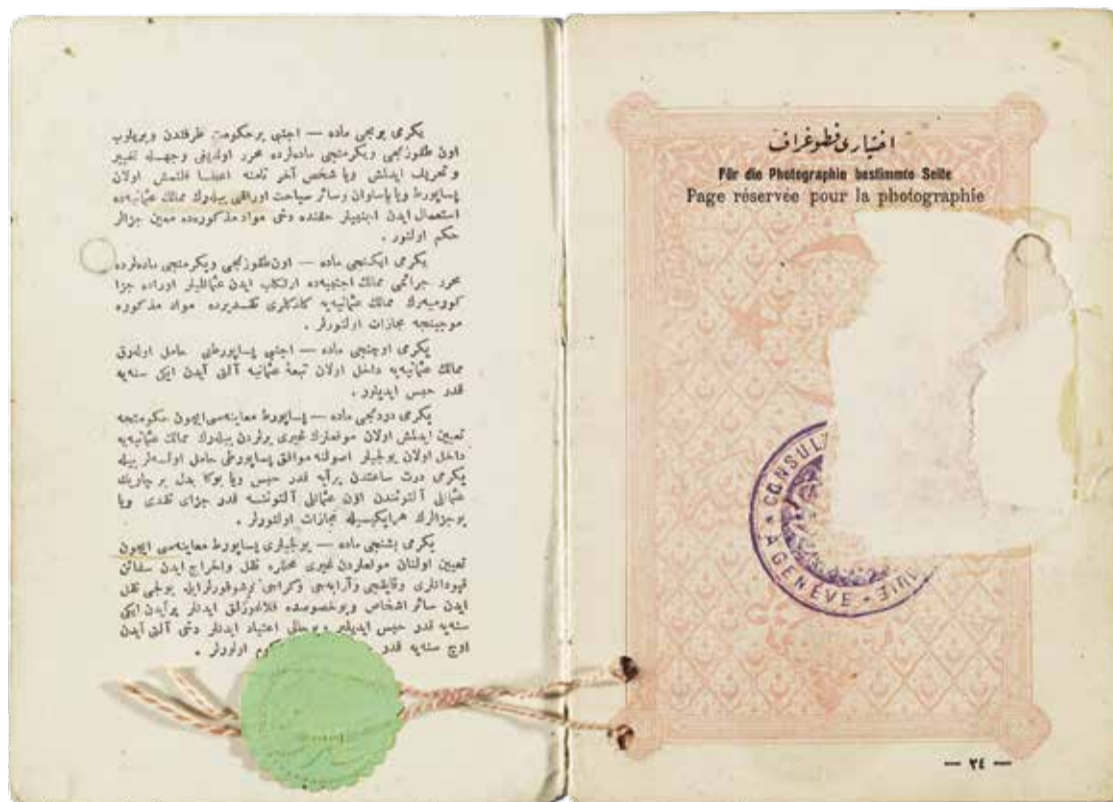 یكرمی برنجی ماده — اجنبی برحكومت طرفندن ویریلوب
اون طقوزنجی ویكرمنجی ماده‌لرده محرر اولدیغی وجهله تغییر
و تحریف ایدلمش ویا شخص آخر نامنه اعطا قلنمش اولان
پساپورط ویا پاساوان وسائر سیاحت اوراقنی بیله‌رك ممالك عثمانیه‌ده
استعمال ایدن اجنبیلر حقنده دخی مواد مذكوره‌ده معین جزالر
حكم اولنور .
یكرمی ایكنجی ماده — اون طقوزنجی ویكرمنجی ماده‌لرده
محرر جرائمی ممالك اجنبیه‌ده ارتكاب ایدن عثمانلیلر اوراده جزا
كورمیه‌رك ممالك عثمانیه‌یه كلدكلری تقدیرده مواد مذكوره
موجبنجه مجازات اولنورلر .
یكرمی اوچنجی ماده — اجنبی پساپورطی حامل اوله‌رق
ممالك عثمانیه‌یه داخل اولان تبعۀ عثمانیه آلتی آیدن ایكی سنه‌یه
قدر حبس ایدیلور .
یكرمی دردنجی ماده — پساپورط معاینه‌سی ایچون حكومتجه
تعیین ایدلمش اولان موقعلرك غیری یرلردن بیله‌رك ممالك عثمانیه‌یه
داخل اولان یولجیلر اصولنه موافق پساپورطی حامل اولسه‌لر بیله
یكرمی درت ساعتدن بر آیه قدر حبس ویا بوكا بدل بر چاریك
عثمانلی آلتونندن اون عثمانلی آلتوننه قدر جزای نقدی ویا
بوجزالرك هر ایكیسیله مجازات اولنورلر .
یكرمی بشنجی ماده — یولجیلری پساپورط معاینه‌سی ایچون
تعیین اولنان موقعلردن غیری محللره نقل واخراج ایدن سفائن
قپودانلری وقایقجی وآرابه‌جی وكراجی وشوفورلرایله یولجی نقل
ایدن سائر اشخاص وبوخصوصده قلاغوزلق ایدنلر برآیدن ایكی
سنه‌یه قدر حبس ایدیلیر وبوحالی اعتیاد ایدنلر دخی آلتی آیدن
اوچ سنه‌یه قدر اولورلر .
اختیاری فطوغراف
Für die Photographie bestimmte Seite
Page réservée pour la photographie
CONSUL
A GENÈVE
— ٢٤ —